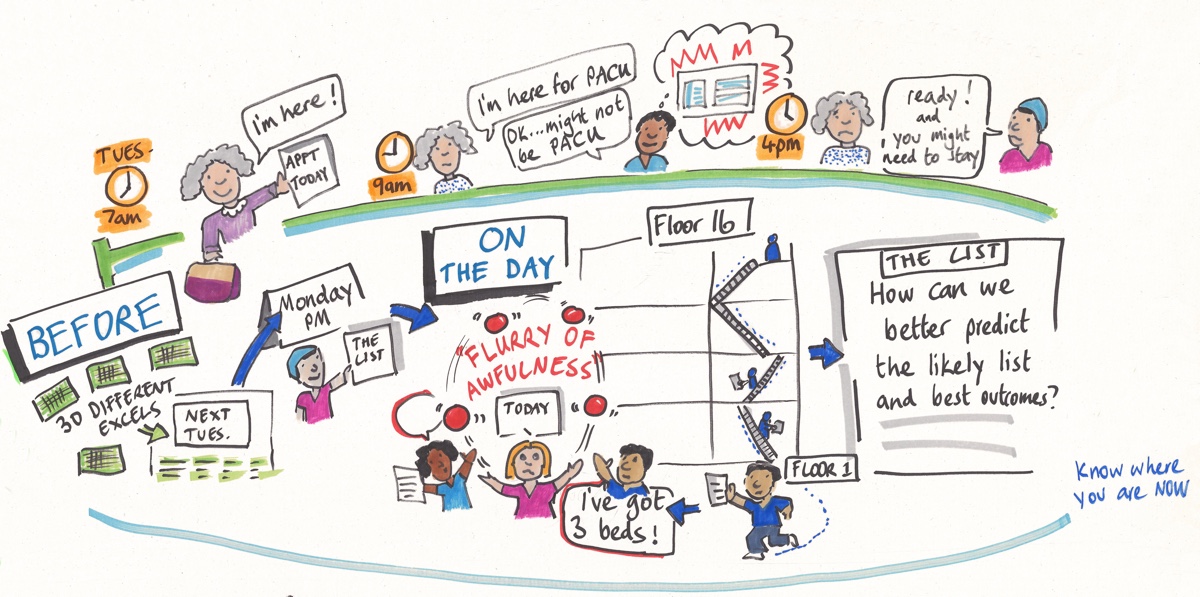 TUES
7am
I'm here!
APPT
TODAY
9am
I'm here for PACU
OK...might not
be PACU
4pm
ready!
and
you might
need to stay
BEFORE
30 DIFFERENT
EXCELS
NEXT
TUES.
Monday
PM
THE
LIST
ON
THE DAY
"FLURRY OF
AWFULNESS"
TODAY
I've got
3 beds!
Floor 16
FLOOR 1
THE LIST
How can we
better predict
the likely list
and best outcomes?
Know where
you are NOW